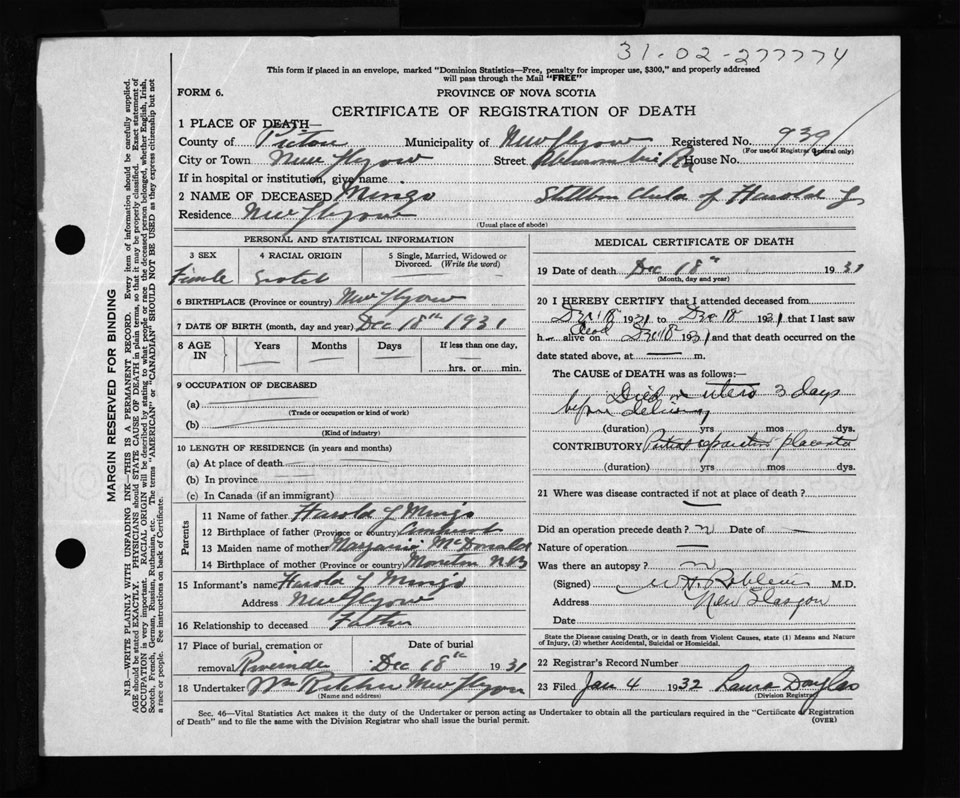 31-02-277774
This form if placed in an envelope, marked "Dominion Statistics—Free, penalty for improper use, $300," and properly addressed
will pass through the Mail "FREE"
FORM 6.
PROVINCE OF NOVA SCOTIA
CERTIFICATE OF REGISTRATION OF DEATH
1 PLACE OF DEATH—
County of Pictou Municipality of New Glasgow Registered No. 939
(For use of Registrar General only)
City or Town New Glasgow Street Abercrombie Rd House No.
If in hospital or institution, give name
2 NAME OF DECEASED Mingo Stillborn child of Harold J
Residence New Glasgow
(Usual place of abode)
PERSONAL AND STATISTICAL INFORMATION
3 SEX
4 RACIAL ORIGIN
5 Single, Married, Widowed or Divorced. (Write the word)
Female Scotch
6 BIRTHPLACE (Province or country) New Glasgow
7 DATE OF BIRTH (month, day and year) Dec 18th 1931
8 AGE IN
Years Months Days If less than one day,
hrs. or min.
9 OCCUPATION OF DECEASED
(a)
(Trade or occupation or kind of work)
(b)
(Kind of industry)
10 LENGTH OF RESIDENCE (in years and months)
(a) At place of death
(b) In province
(c) In Canada (if an immigrant)
Parents
11 Name of father Harold J Mingo
12 Birthplace of father (Province or country) Amherst
13 Maiden name of mother Marjorie McDonald
14 Birthplace of mother (Province or country) Moncton N.B
15 Informant's name Harold J Mingo
Address New Glasgow
16 Relationship to deceased Father
17 Place of burial, cremation or Date of burial
removal Riverside Dec 18th 1931
18 Undertaker Wm Ritchie New Glasgow
(Name and address)
MEDICAL CERTIFICATE OF DEATH
19 Date of death Dec 18th 1931
(Month, day and year)
20 I HEREBY CERTIFY that I attended deceased from
Dec 18 1931 to Dec 18 1931 that I last saw
dead
h alive on Dec 18 1931 and that death occurred on the
date stated above, at — m.
The CAUSE of DEATH was as follows:—
Died in utero 3 days
before delivery
(duration) yrs mos dys.
CONTRIBUTORY Partial separation placenta
(duration) yrs mos dys.
21 Where was disease contracted if not at place of death?
Did an operation precede death? n Date of —
Nature of operation —
Was there an autopsy? n
(Signed) M.D.
Address New Glasgow
Date
State the Disease causing Death, or in death from Violent Causes, state (1) Means and Nature
of Injury, (2) whether Accidental, Suicidal or Homicidal.
22 Registrar's Record Number
23 Filed Jan 4 1932 Laura Douglas
(Division Registrar)
Sec. 46—Vital Statistics Act makes it the duty of the Undertaker or person acting as Undertaker to obtain all the particulars required in the "Certificate of Registration
of Death" and to file the same with the Division Registrar who shall issue the burial permit.
(OVER)
MARGIN RESERVED FOR BINDING
N.B.—WRITE PLAINLY WITH UNFADING INK—THIS IS A PERMANENT RECORD. Every item of information should be carefully supplied.
AGE should be stated EXACTLY. PHYSICIANS should STATE CAUSE OF DEATH in plain terms, so that it may be properly classified. Exact statement of
OCCUPATION is very important. RACIAL ORIGIN will be described by stating to what people or race the deceased person belonged, whether English, Irish,
Scotch, French, German, Russian, Ruthenian, etc. The terms "AMERICAN" or "CANADIAN" SHOULD NOT BE USED as they express citizenship but not
a race or people. Fee instructions on back of Certificate.